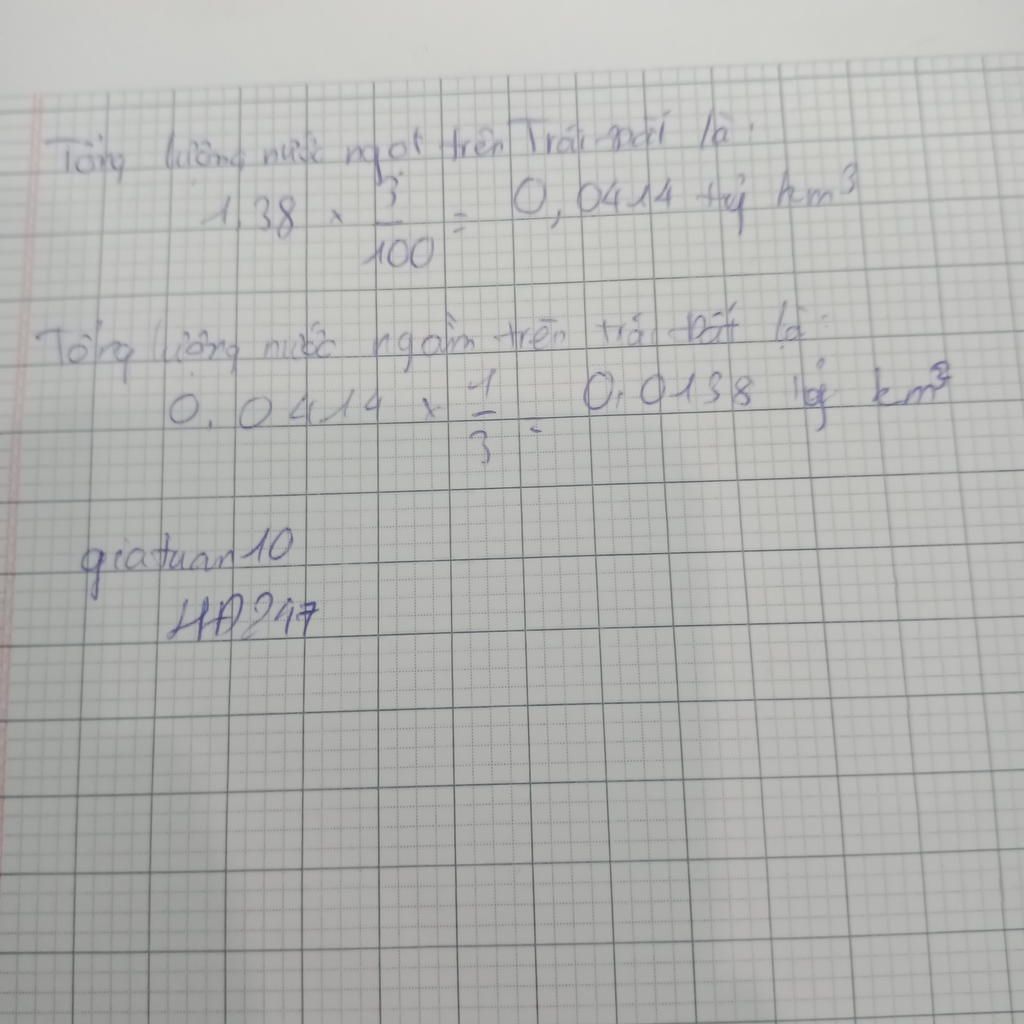 Tổng lượng nước ngọt trên Trái đất là:
1,38 × 3/100 = 0,0414 tỷ km³
Tổng lượng nước ngầm trên trái đất là:
0,0414 × 1/3 = 0,0138 tỷ km³
giatuan10
HD247